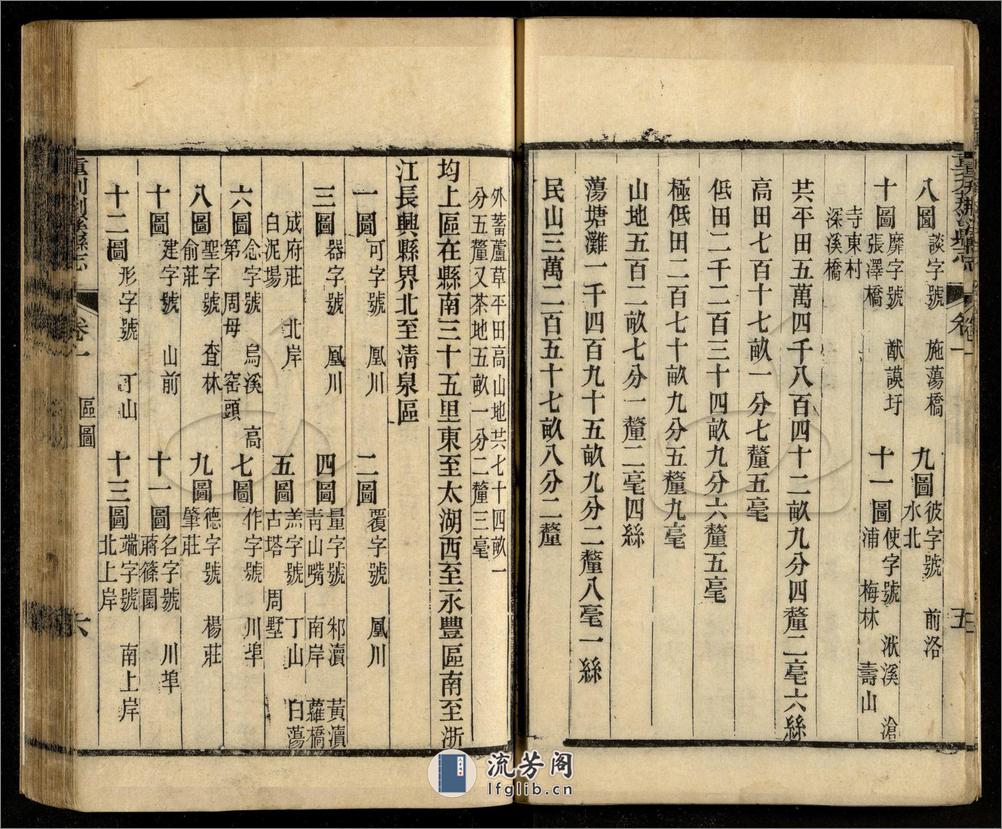 八圖談字號 施蕩橋 九圖彼字號 前洛
水北
十圖靡字號 猷謨圩 十一圖使字號 洑溪 滄
張澤橋 浦 梅林 壽山
寺東村
深溪橋
共平田五萬四千八百四十二畝九分四釐二毫六絲
高田七百六十七畝一分七釐五毫
低田二千二百三十四畝九分六釐五毫
極低田二百七十畝九分五釐九毫
山地五百二畝七分一釐二毫四絲
蕩塘灘一千四百九十五畝九分二釐八毫一絲
民山三萬二百五十七畝八分二釐
卷一
五
外蓄蘆草平田高山地共七十四畝一
分五釐又茶地五畝一分二釐三毫
均上區在縣南三十五里東至太湖西至永豐區南至浙
江長興縣界北至清泉區
一圖可字號 凰川 二圖覆字號 凰川
三圖器字號 凰川 四圖量字號 邾瀆 黃瀆
成府莊 北岸 青山嘴 南岸 蘿橋
白泥場 五圖羔字號 丁山 白蕩
古塔 周墅
六圖念字號 烏溪 高 七圖作字號 川埠
第 周母 窑頭
八圖聖字號 查林 九圖德字號 楊莊
俞莊 肇莊
十圖建字號 山前 十一圖名字號 川埠
蔣篠園
十二圖形字號 丁山 十三圖端字號 南上岸
北上岸
重刊荆溪縣志
卷一
區圖
六
流芳阁
lfglib.cn